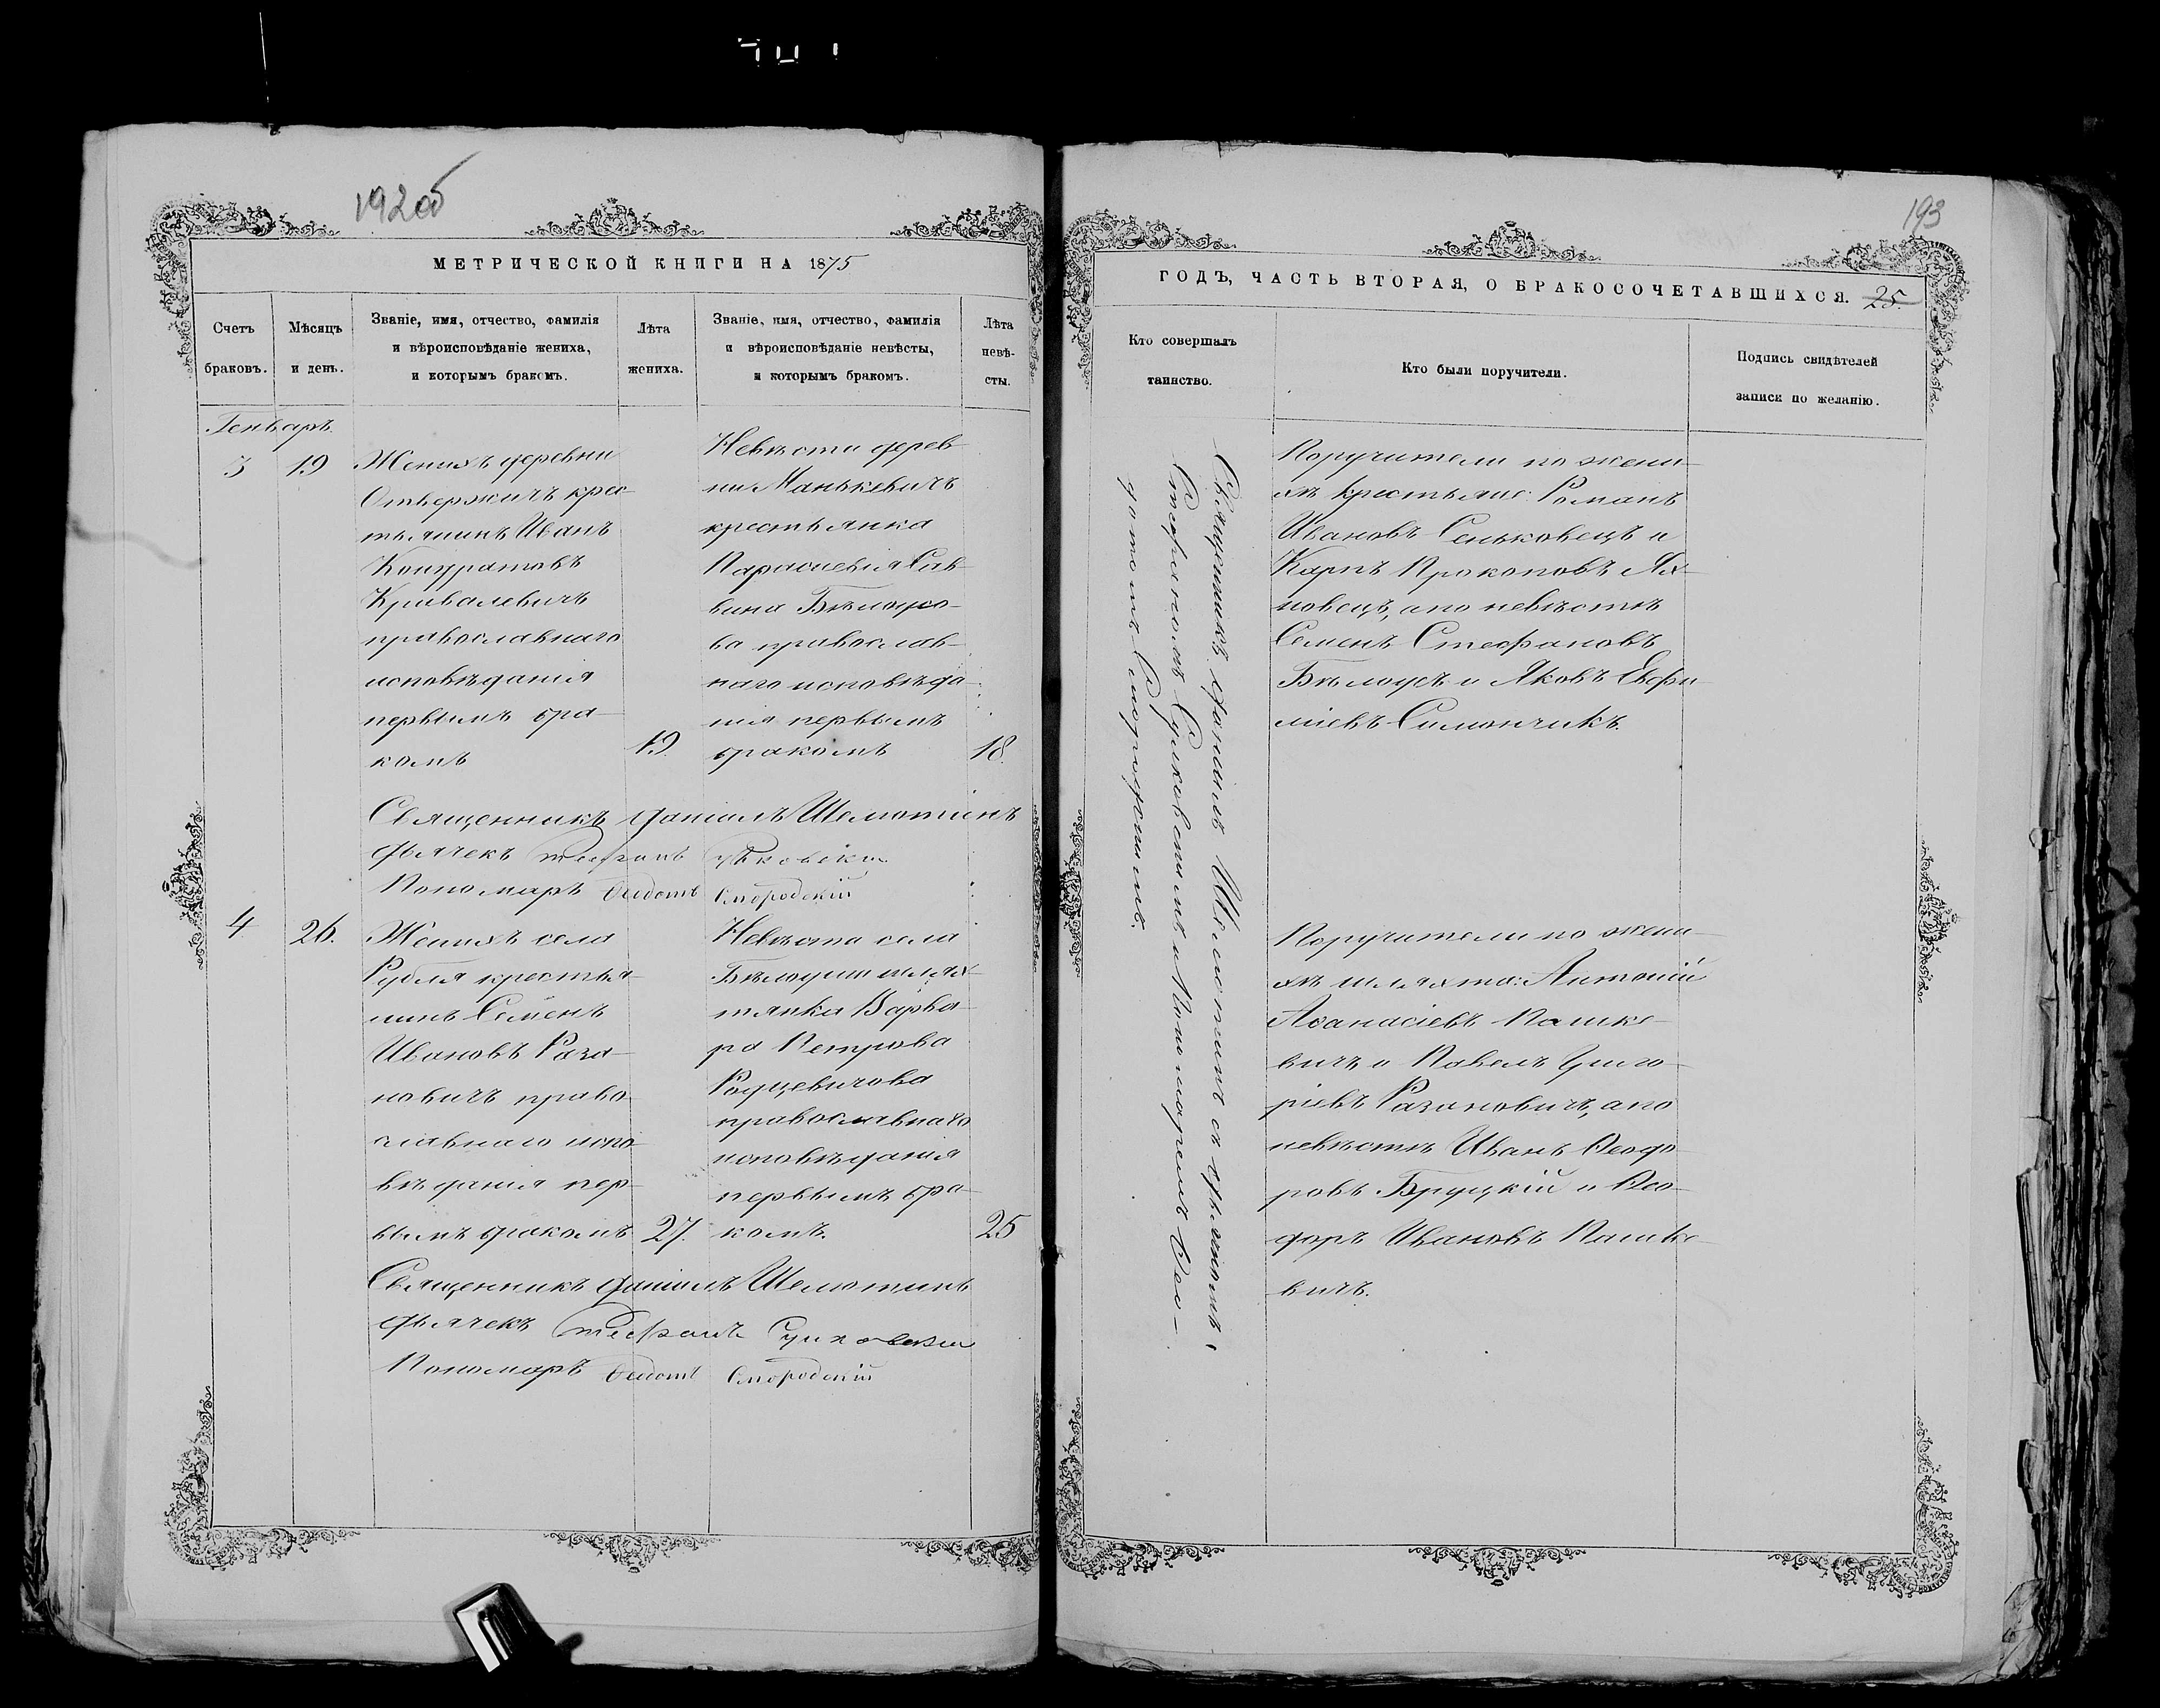 192об
193
МЕТРИЧЕСКОЙ КНИГИ НА 1875
Счетъ
браковъ.
Мѣсяцъ
и день.
Званіе, имя, отчество, фамилія
и вѣроисповѣданіе жениха,
и которымъ бракомъ.
Лѣта
жениха.
Званіе, имя, отчество, фамилія
и вѣроисповѣданіе невѣсты,
и которымъ бракомъ.
Лѣта
невѣ-
сты.
Генварь
3
19
Женихъ деревни
Отвержичъ крес-
тьянинъ Иванъ
Кондратовъ
Кривалевичъ
православнаго
исповѣданія
первымъ бра-
комъ
19.
Невѣста дерев-
ни Манькевичъ
крестьянка
Параскевія Сав-
вина Бѣлоусо-
ва православ-
наго исповѣда-
нія первымъ
бракомъ
18.
Священникъ Даніилъ Шеметилъ
Дьячекъ Стефанъ
Пономарь Ѳедотъ Смородскій
4
26.
Женихъ села
Рубля крестья-
нинъ Семенъ
Ивановъ Раза-
новичъ право-
славнаго испо-
вѣданія пер-
вымъ бракомъ
27.
Невѣста села
Бѣлоуши шлях-
тянка Варва-
ра Петрова
Родцевичова
православнаго
исповѣданія
первымъ бра-
комъ.
25
Священникъ Даніилъ
Дьячекъ Стефанъ
Пономарь Ѳедотъ Смородскій
ГОДЪ, ЧАСТЬ ВТОРАЯ, О БРАКОСОЧЕТАВШИХСЯ. 25.
Кто совершалъ
таинство.
Кто были поручители.
Подпись свидѣтелей
записи по желанію.
Священникъ Даніилъ съ причтомъ:
Стефаномъ и Пономаремъ Ѳео-
дотомъ Смородскимъ.
Поручители по жени-
хѣ крестьяне: Романъ
Ивановъ Сеньковецъ и
Карпъ Прокоповъ Ях-
новецъ, а по невѣстѣ
Семенъ Стефановъ
Бѣлоусъ и Яковъ Евфи-
міевъ Симончикъ.
Поручители по жени-
хѣ шляхта: Антоній
Аѳанасіевъ Пашке-
вичъ и Павелъ Григо-
ріевъ Разановичъ, а по
невѣстѣ Иванъ Ѳеодо-
ровъ Бруцкій и Ѳео-
доръ Ивановъ Пашке-
вичъ.